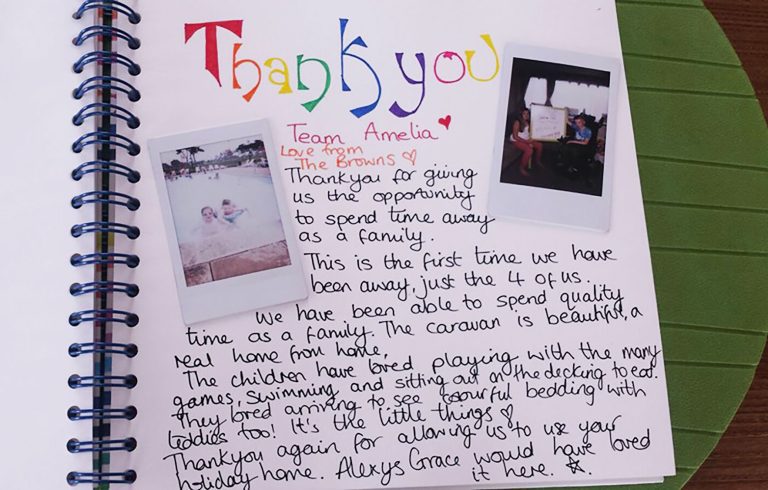 Thank you
Team Amelia
Love from
The Browns
Thankyou for giving
us the opportunity
to spend time away
as a family.
This is the first time we have
been away, just the 4 of us.
We have been able to spend quality
time as a family. The caravan is beautiful, a
real home from home,
The children have loved playing with the many
games, swimming, and sitting out on the decking to eat.
They loved arriving to see colourful bedding with
teddies too! It's the little things
Thankyou again for allowing us to use your
holiday home. Alexys Grace would have loved
it here.